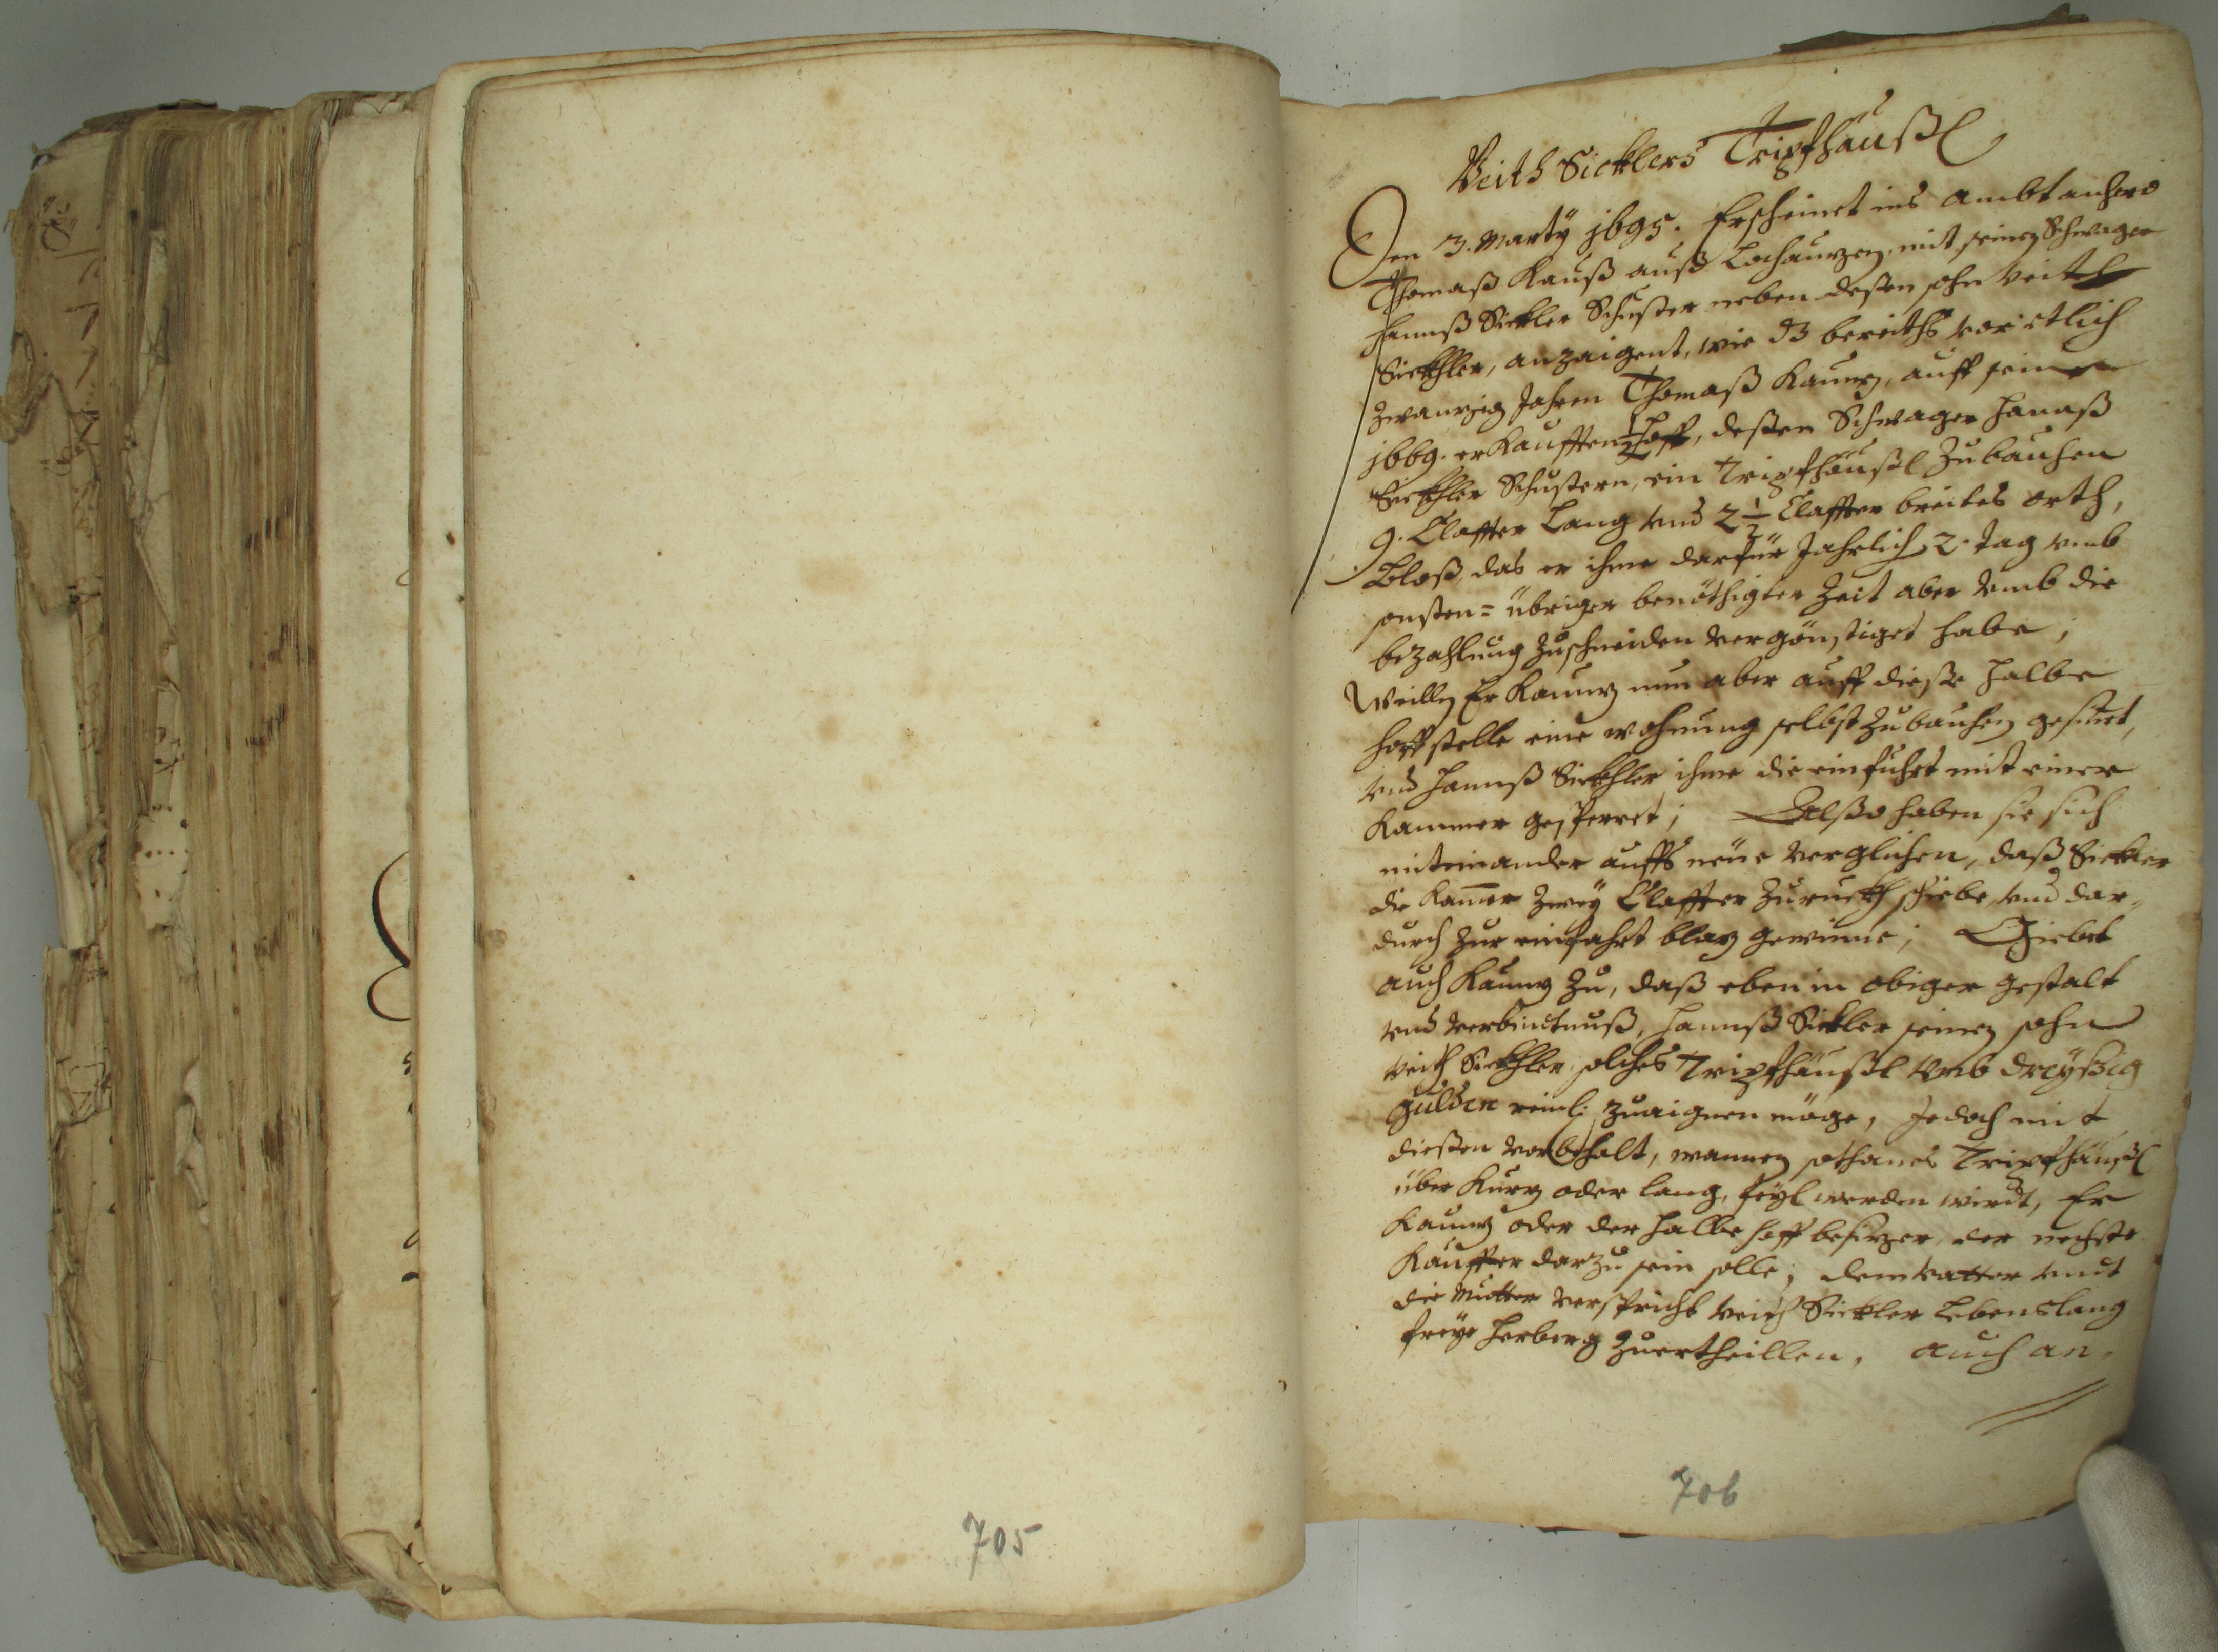 Veith Sicklers Tripfhäußl
Den 3. Marty 1695. Erscheinet ins Ambt anhero
Thomaß Kauß auß Lochauzen, mit seinen Schwager
Hannß Sickler Schuster neben deßen sohn Veith
Sickhler, anzaigent, wie dz bereiths vor etlich
zwanzig Jahren Thomaß Kaunz, auff seinen
1669. erkaufften ½ hoff, deßen Schwager Hannß
Sickhler Schustern, ein Tripfhäußl Zubauhen
9. Claffter Lang vnd 2 ½ Claffter breites orth,
bloß, das er ihme darfür Jahrlich 2. tag vmb
sonsten= übriger benöthigter Zeit aber vmb die
bezahlung zuschneiden vergönstiget habe;
Weilln Er Kaunz nun aber auff dieße halbe
hoffstelle eine wohnung selbst Zubauhen gesinet,
vnd Hannß Sickhler ihme die einfuhrt mit einer
Kammer gesperret; Alßo haben sie sich
miteinander auffs neüe verglichen, daß Sickler
die Kam̄er Zwey Claffter Zuruckh schiebe, vnd dar„
durch zur einfahrt blaz gewinne; Giebet
auch Kaunz Zu, daß eben in obiger gestalt
vnd verbindtnuß, Hannß Sickler seinen sohn
Veith Sickhler, solches Tripfhäußl vmb dreyßig
gulden reinl: zuaignen möge, Jedoch mit
dießen vorbehalt, wannen sothanes Tripfhäußl
über kurz oder lang, feyl werden wirdt, Er
Kaunz oder der halbe hoff besizer, der nechste
Kauffer darzu sein solle; dem vatter vndt
die Mutter verspricht Veith Sickler Lebenslang
freye herberg zuertheillen, auch an„
705
706